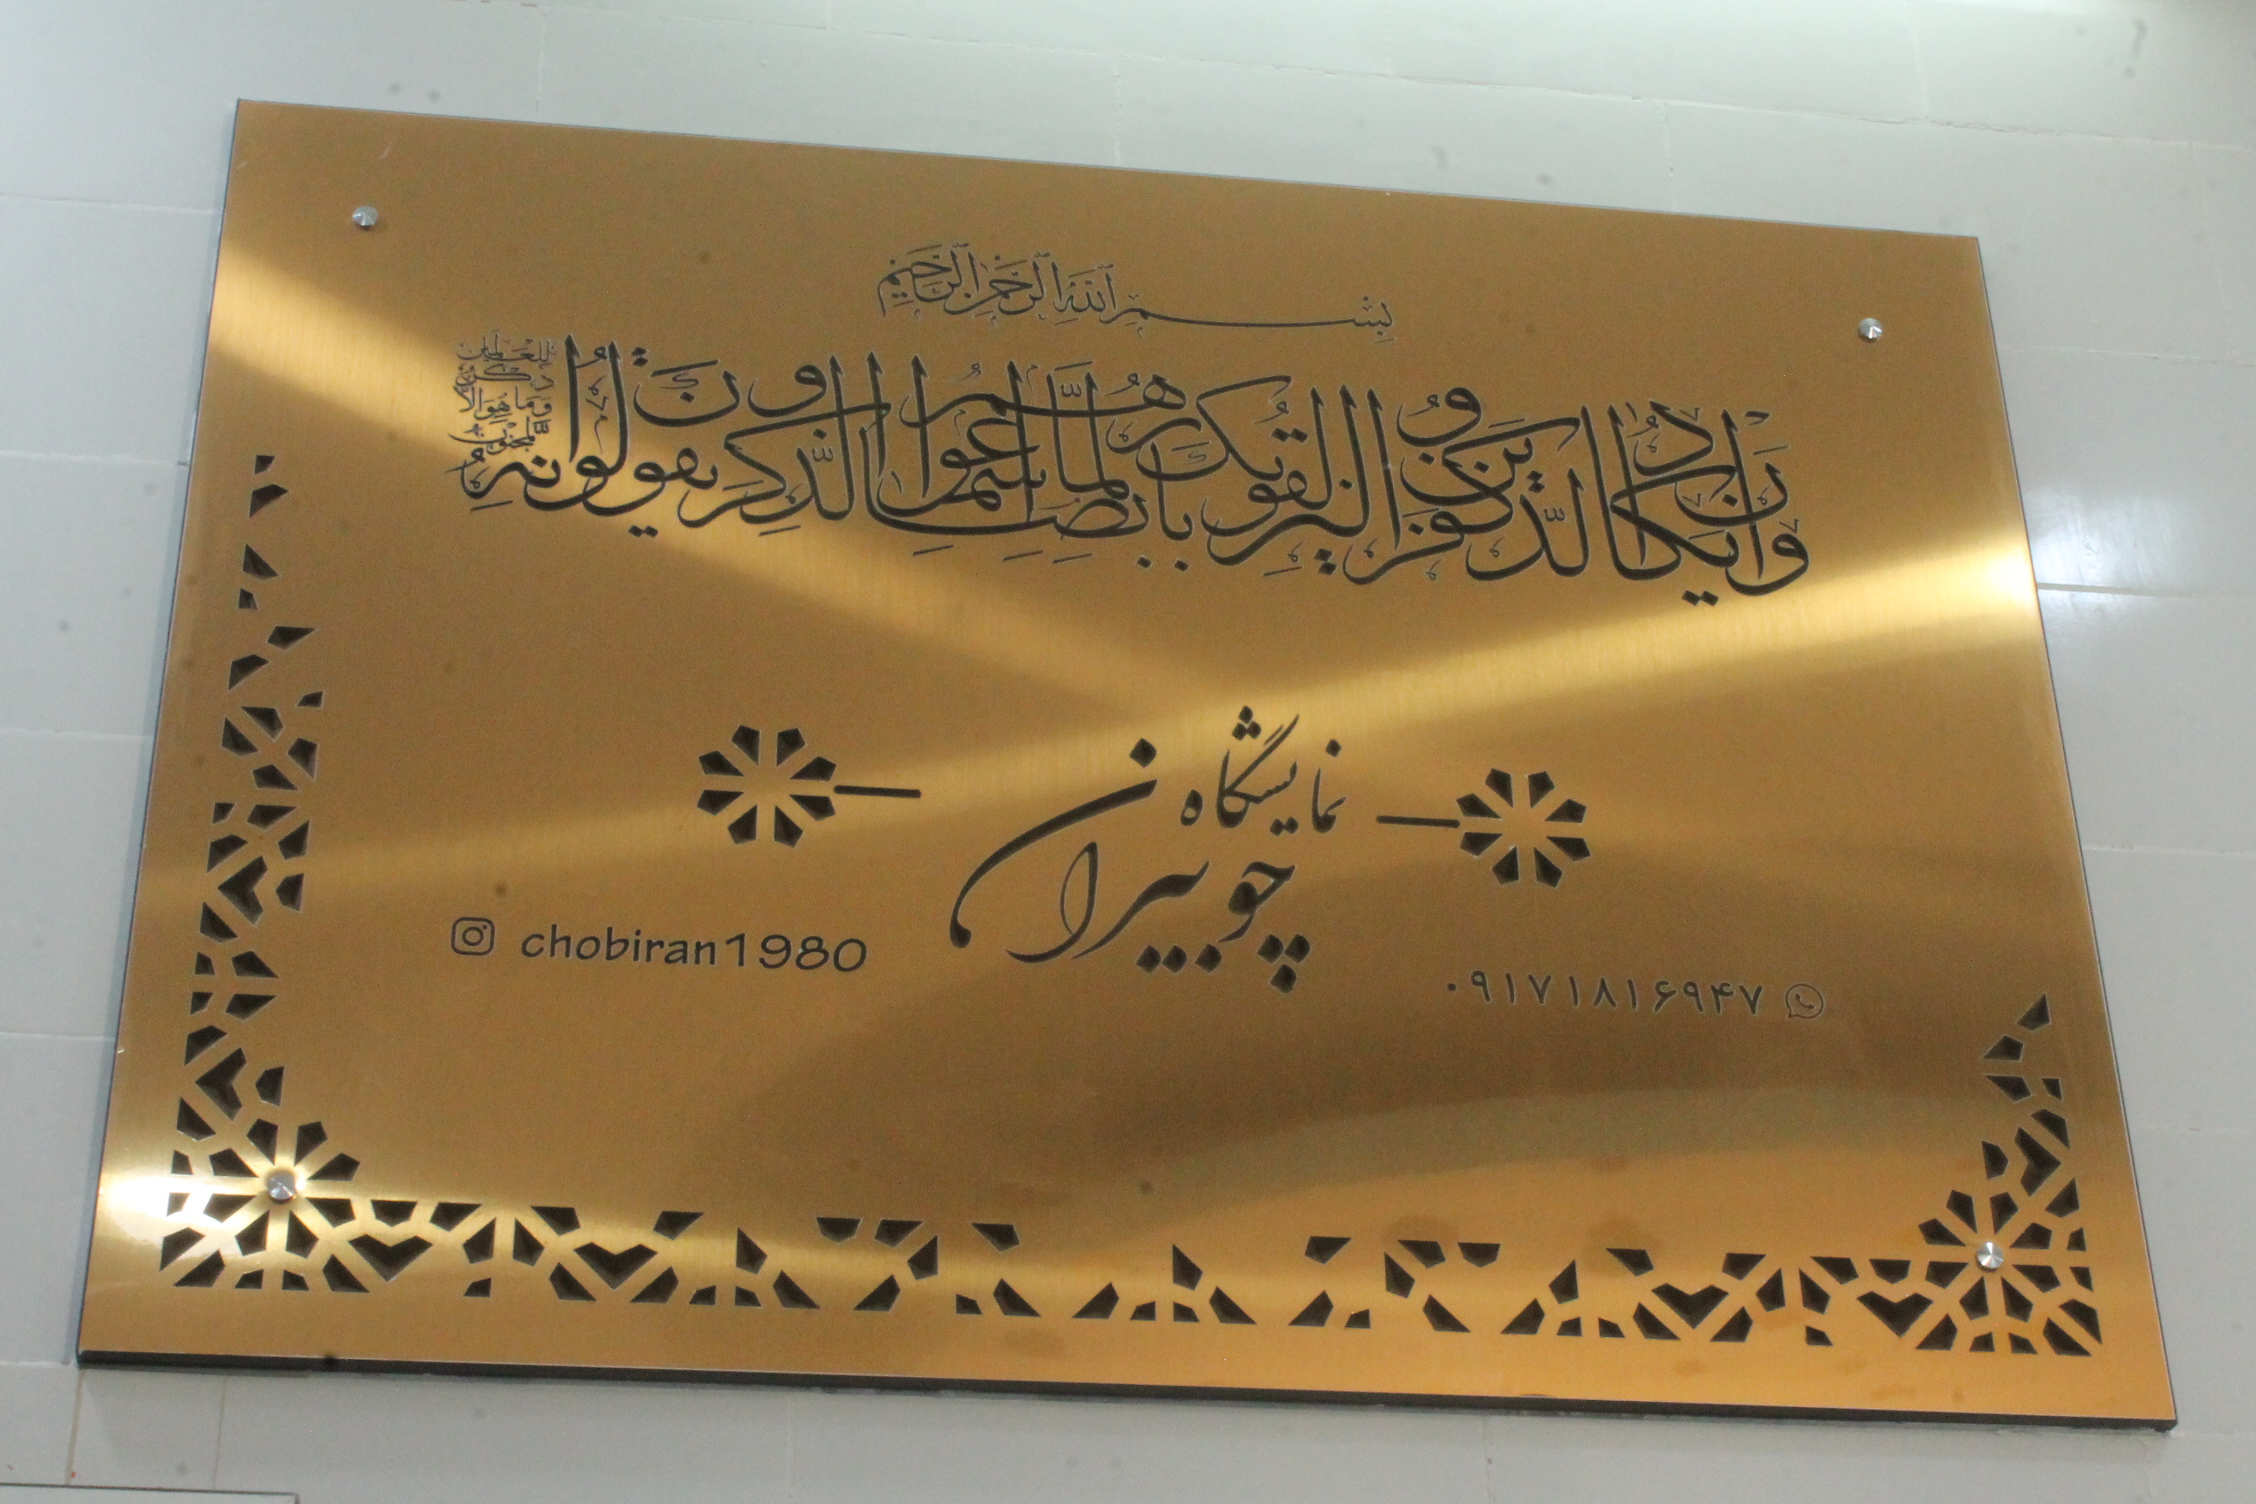 بِسْمِ اللَّهِ الرَّحْمَٰنِ الرَّحِيمِ
وَإِن يَكَادُ الَّذِينَ كَفَرُوا لَيُزْلِقُونَكَ بِأَبْصَارِهِمْ لَمَّا سَمِعُوا الذِّكْرَ وَيَقُولُونَ إِنَّهُ لَمَجْنُونٌ وَمَا هُوَ إِلَّا ذِكْرٌ لِّلْعَالَمِينَ
نمایشگاه
چوبیران
chobiran1980
۰۹۱۷۱۸۱۶۹۴۷